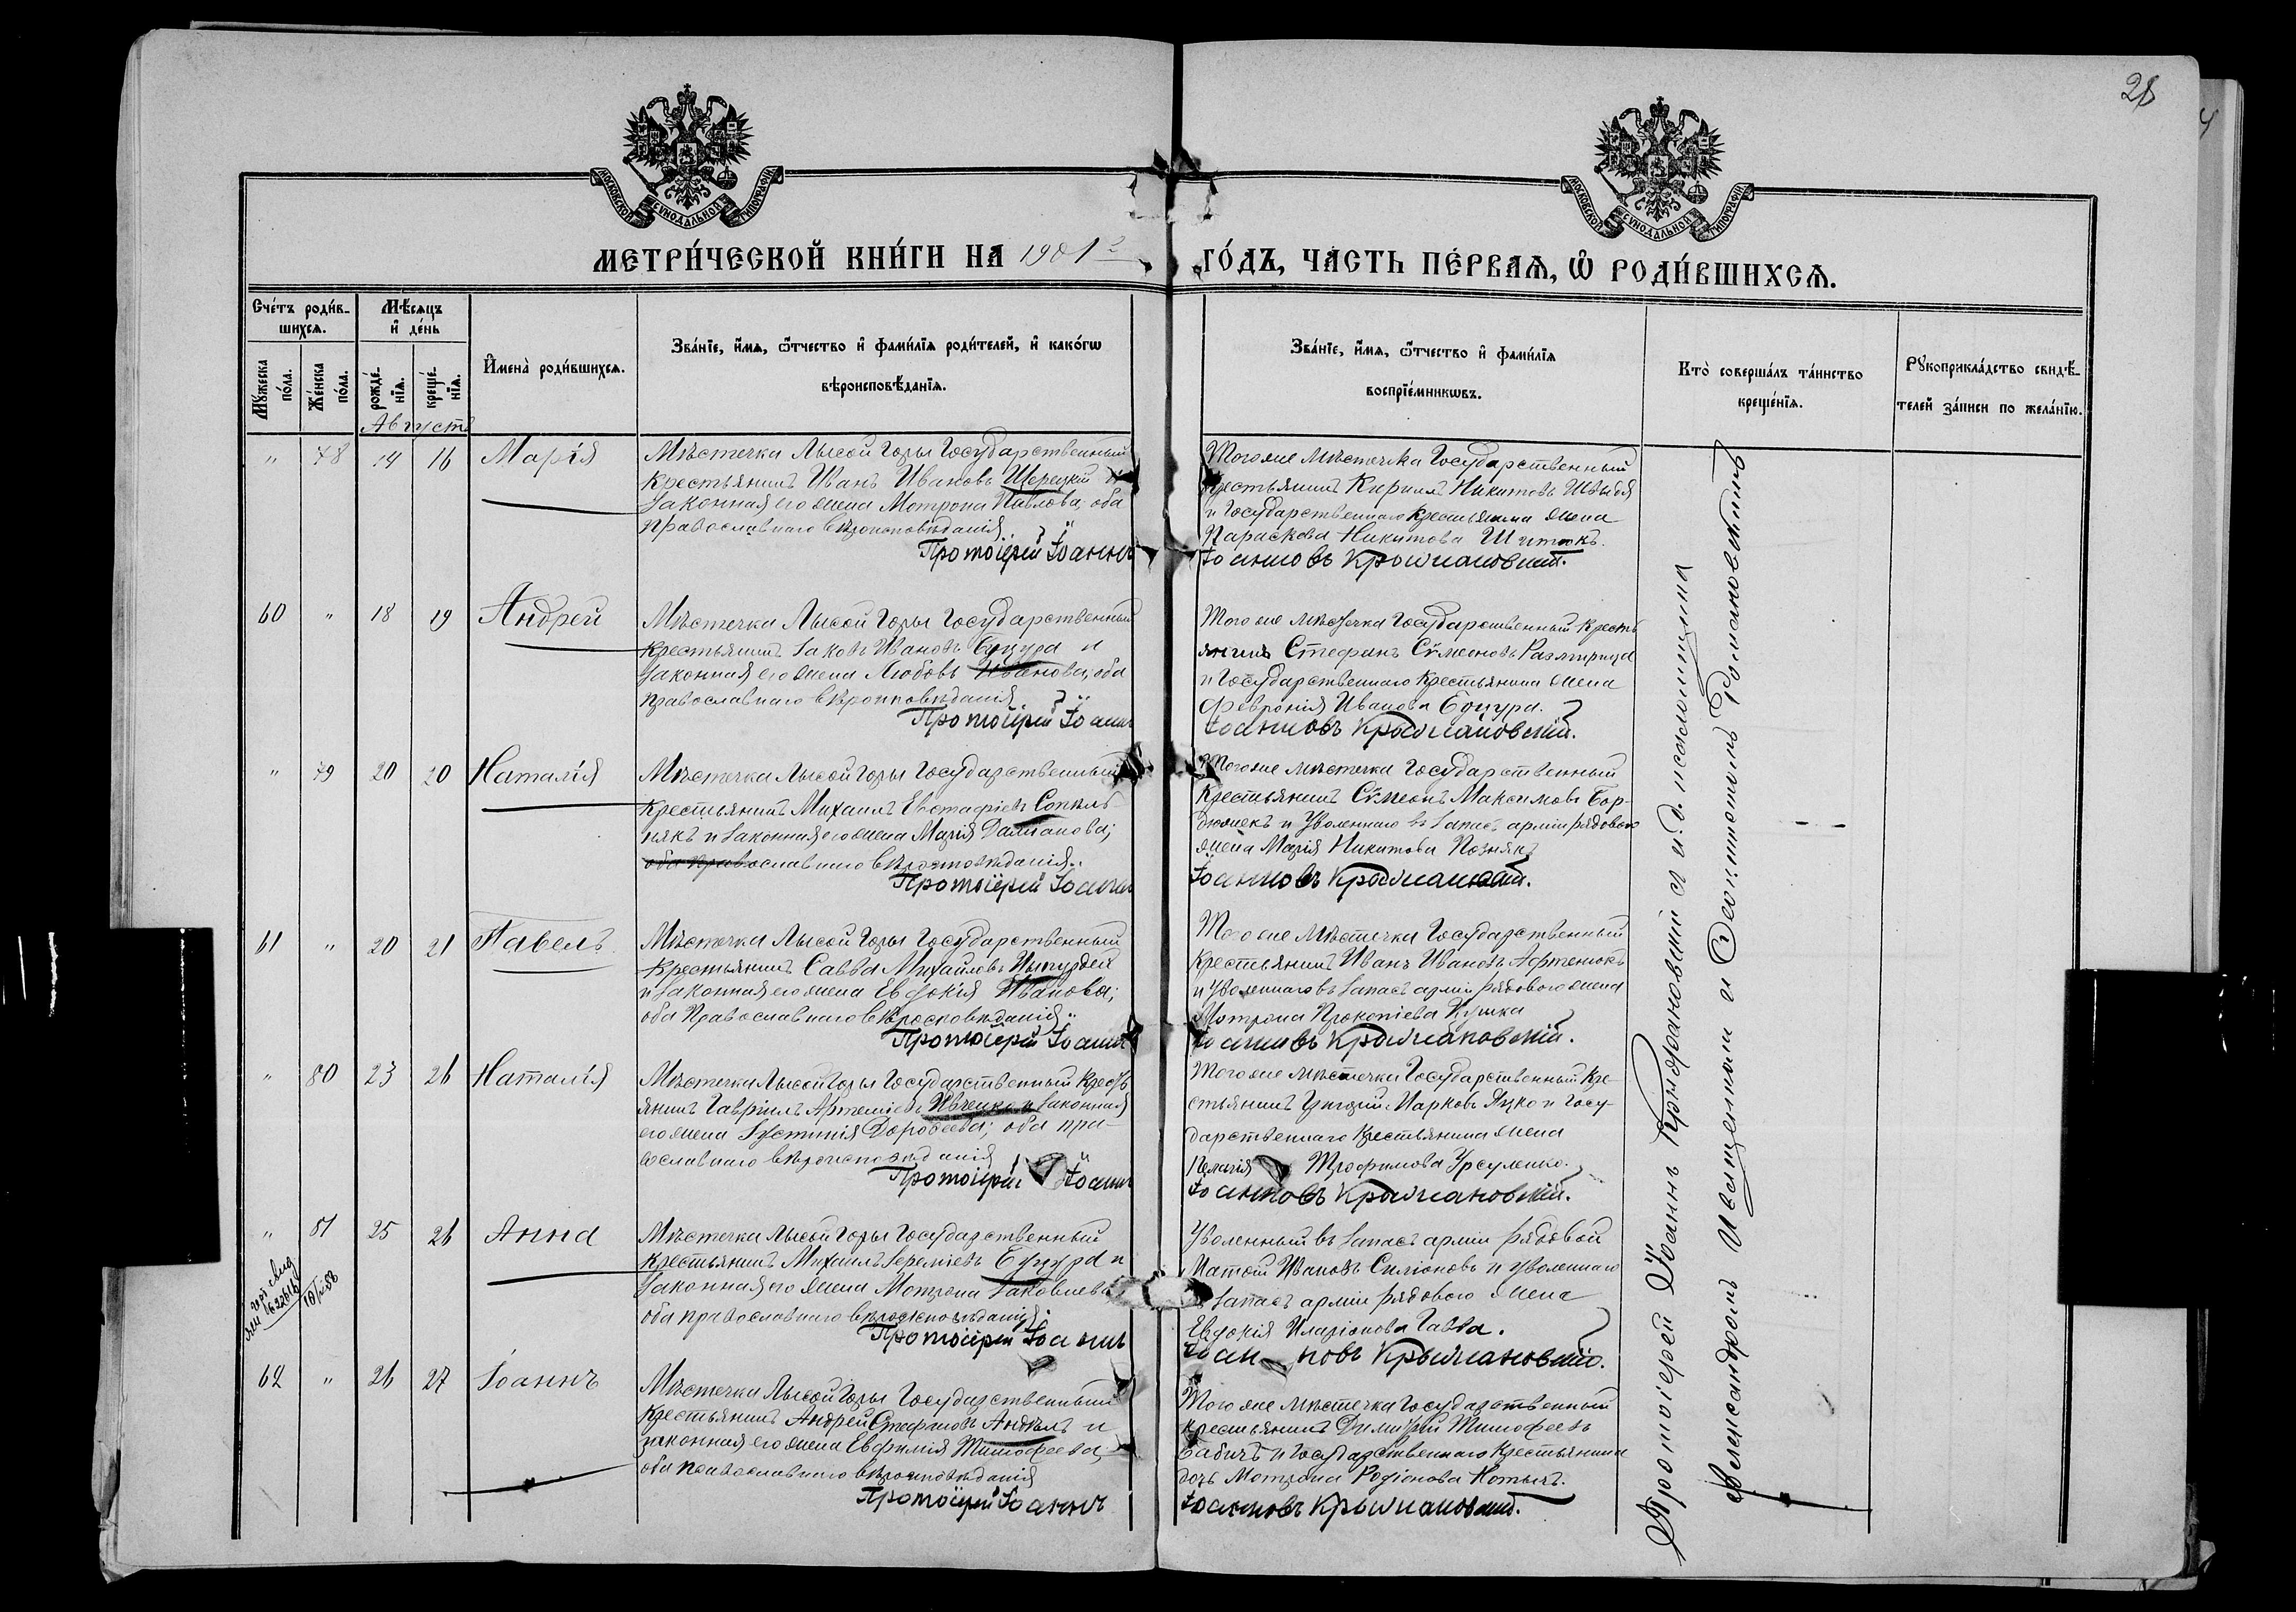 28
МОСКОВСКОЙ СѴНОДАЛЬНОЙ ТИПОГРАФІИ
МОСКОВСКОЙ СѴНОДАЛЬНОЙ ТИПОГРАФІИ
МЕТРИ́ЧЕСКОЙ КНИ́ГИ НА 1901 г ГО́ДЪ, ЧА́СТЬ ПЕ́РВАѦ, Ѡ РОДИ́ВШИХСѦ.
Сче́тъ роди́в-
шихсѧ.
Мѣ́сѧцъ
и҆ де́нь
Мꙋ́жеска по́ла.
Же́нска по́ла.
рожде́-
нїѧ.
креще́-
нїѧ.
И҆мена̀ роди́вшихсѧ.
Зва́нїе, и҆́мѧ, ѻ҆́тчество и҆ фами́лїѧ роди́телей, и҆ како́гѡ
вѣроисповѣ́данїѧ.
Зва́нїе, и҆́мѧ, ѻ҆́тчество и҆ фами́лїѧ
воспрїе́мникѡвъ.
Кто̀ соверша́лъ та́инство
креще́нїѧ.
Рꙋкоприкла́дство свидѣ́-
телей за́писи по жела́нїю.
Августъ
" 78 14 16 Марія
Мѣстечка Лысой Горы Государственный
крестьянинъ Иванъ Ивановъ Шерецкій и
законная его жена Мотрона Павлова, оба
православнаго вѣроисповѣданія
Протоіерей Іоаннъ
Того же мѣстечка Государственный
крестьянинъ Кириллъ Никитовъ
и Государственнаго крестьянина жена
Параскева Никитова Шитокъ.
Іоанновъ Крыжановскій.
60 " 18 19 Андрей
Мѣстечка Лысой Горы Государственный
крестьянинъ Іаковъ Ивановъ Буцура и
законная его жена Любовь Иванова, оба
православнаго вѣроисповѣданія
Протоіерей Іоаннъ
Того же мѣстечка Государственный кресть
янинъ Стефанъ Сѵмеоновъ Размирица
и Государственнаго крестьянина жена
Февронія Иванова Буцура.
Іоанновъ Крыжановскій.
" 79 20 20 Наталія
Мѣстечка Лысой Горы Государственный
крестьянинъ Михаилъ Евстафіевъ Сопѣль
някъ и законная его жена Марія Даміанова;
оба православнаго вѣроисповѣданія
Протоіерей Іоаннъ
Того же мѣстечка Государственный
крестьянинъ Сѵмеонъ Максимовъ Бор-
дюжекъ и уволеннаго въ запасъ арміи рядового
жена Марія Никитова Познякъ
Іоанновъ Крыжановскій.
61 " 20 21 Павелъ
Мѣстечка Лысой Горы Государственный
крестьянинъ Савва Михайловъ Цыпурдей
и законная его жена Евдокія Иванова;
оба Православнаго вѣроисповѣданія
Протоіерей Іоаннъ
Того же мѣстечка Государственный
крестьянинъ Иванъ Ивановъ Афтенюкъ
и уволеннаго въ запасъ арміи рядового жена
Мотрона Прокопіева
Іоанновъ Крыжановскій.
" 80 23 26 Наталія
Мѣстечка Лысой Горы Государственный Кресть
янинъ Гавріилъ Артеміевъ Ивченко и законная
его жена Іустинія Дороѳеева; оба пра-
вославнаго вѣроисповѣданія
Протоіерей Іоаннъ
Того же мѣстечка Государственный Кре-
стьянинъ Григорій Марковъ Яцко и Госу-
дарственнаго крестьянина жена
Пелагія Трофимова Урсуленко.
Іоанновъ Крыжановскій.
" 81 25 26 Анна
10/X-58
Мѣстечка Лысой Горы Государственный
крестьянинъ Михаилъ Іереміевъ Буцура и
законная его жена Мотрона Іаковлева
оба православнаго вѣроисповѣданія
Протоіерей Іоаннъ
Уволенный въ запасъ арміи рядовой
Ивановъ Симіоновъ и уволеннаго
въ запасъ арміи рядового жена
Евдокія Иларіонова Гавва.
Іоанновъ Крыжановскій.
62 " 26 27 Іоаннъ
Мѣстечка Лысой Горы Государственный
крестьянинъ Андрей Стефановъ и
законная его жена Евфимія Тимофеева,
оба православнаго вѣроисповѣданія
Протоіерей Іоаннъ
Того же мѣстечка Государственный
крестьянинъ Димитрій Тимофеевъ
Бабичъ и Государственнаго Крестьянина
дочь Мотрона Родіонова
Іоанновъ Крыжановскій.
Протоіерей Іоаннъ Крыжановскій съ и. д. псаломщика
Александромъ Иващенкомъ и Ѳеоктистомъ Романовскимъ